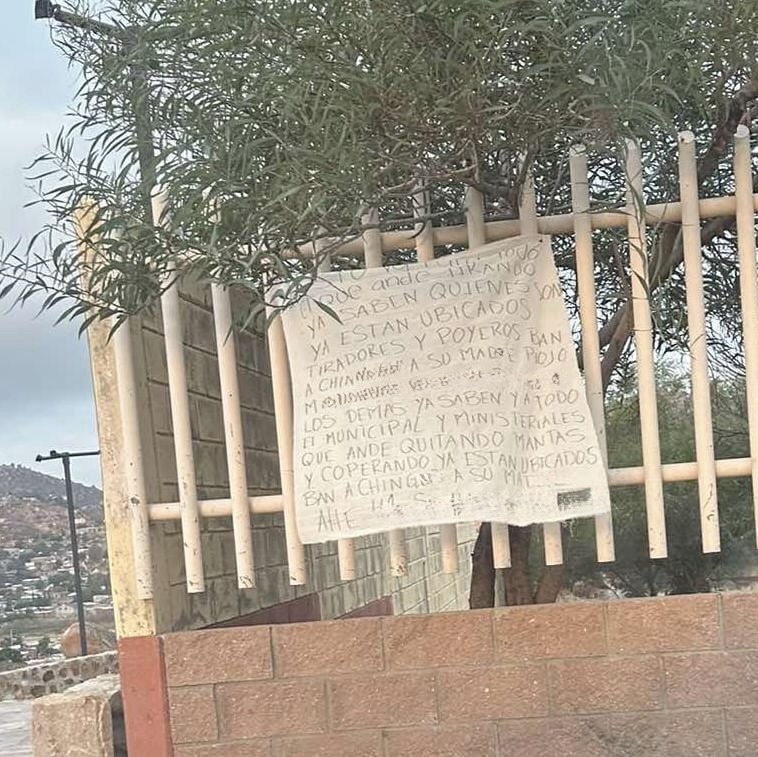 TODO
EL QUE ande TIRANDO
YA SABEN QUIENES SON
YA ESTAN UBICADOS
TIRADORES Y POYEROS BAN
A SU MADRE PIOJO
LOS DEMAS YA SABEN Y A TODO
El MUNICIPAL Y MINISTERIALES
QUE ANDE QUITANDO MANTAS
Y COPERANDO YA ESTAN UBICADOS
BAN A CHINGAR A SU